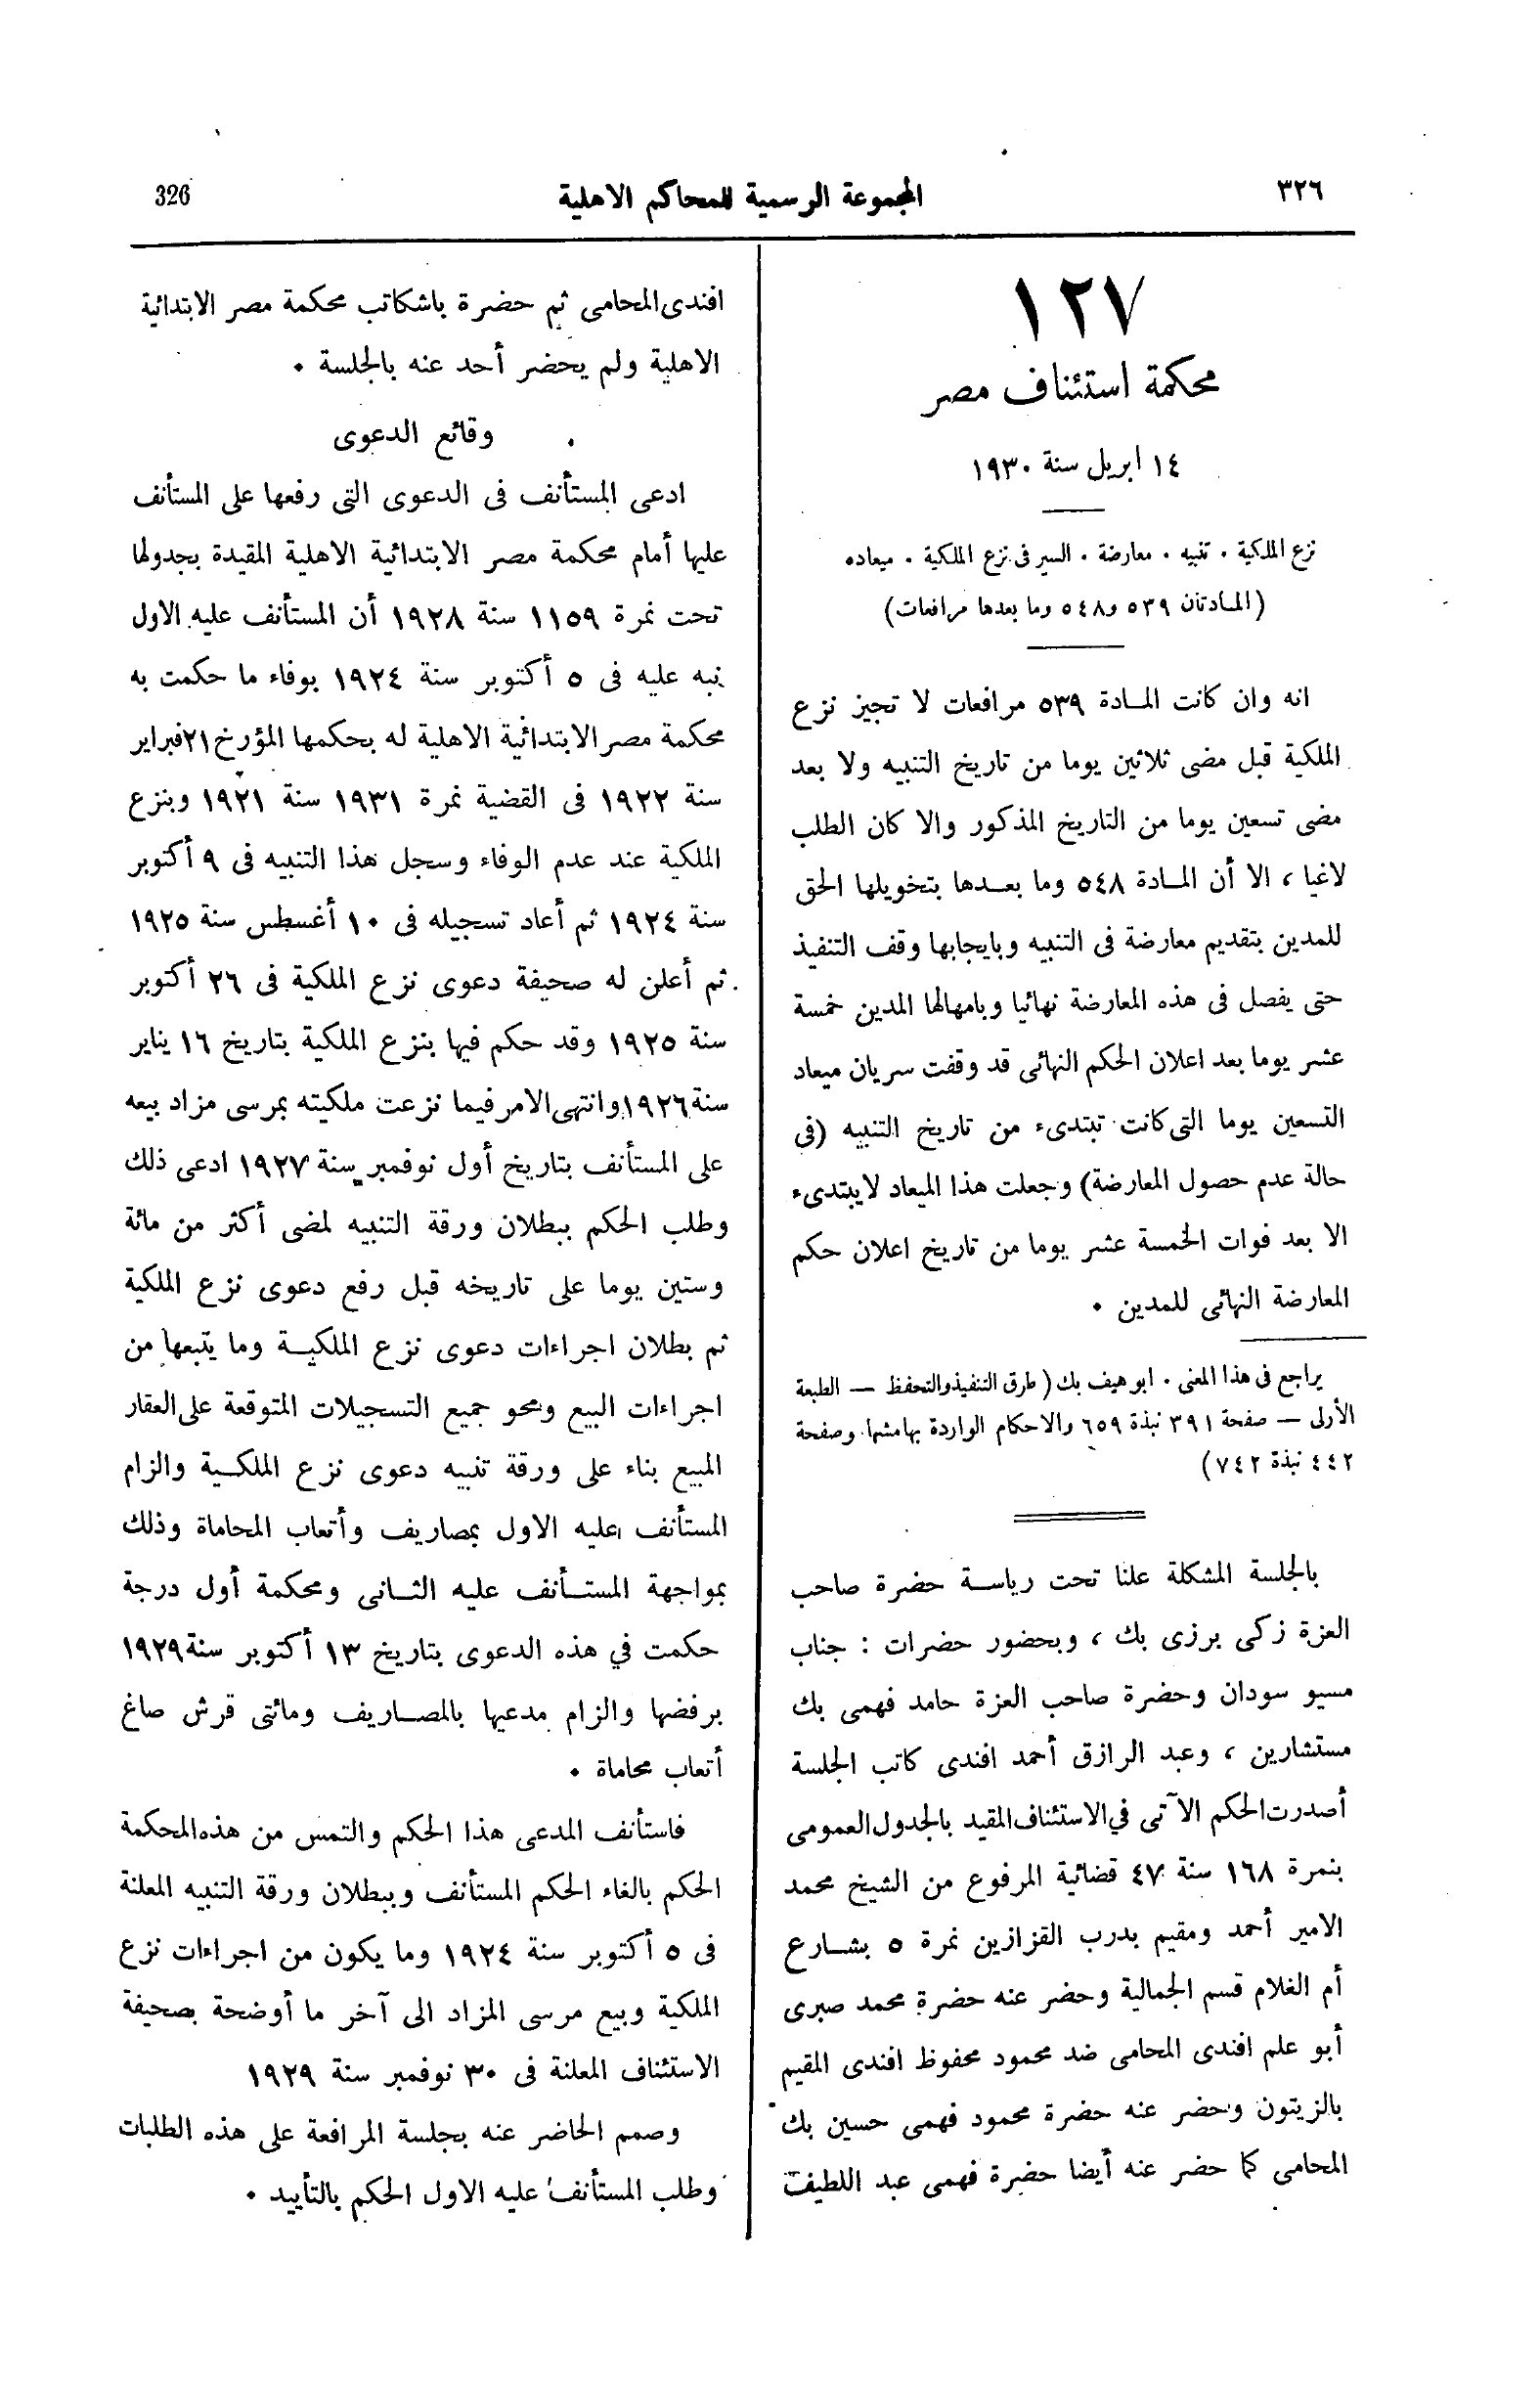 ٣٢٦
المجموعة الرسمية للمحاكم الاهلية
326
١٢٧
محكمة استئناف مصر
١٤ ابريل سنة ١٩٣٠
نزع الملكية . تنبيه . معارضة . السير فى نزع الملكية . ميعاده
(المادتان ٥٣٩ و٥٤٨ وما بعدها مرافعات)
انه وان كانت المادة ٥٣٩ مرافعات لا تجيز نزع
الملكية قبل مضى ثلاثين يوما من تاريخ التنبيه ولا بعد
مضى تسعين يوما من التاريخ المذكور والا كان الطلب
لاغيا ، الا أن المادة ٥٤٨ وما بعدها بتخويلها الحق
للمدين بتقديم معارضة فى التنبيه وبايجابها وقف التنفيذ
حتى يفصل فى هذه المعارضة نهائيا وبامهالها المدين خمسة
عشر يوما بعد اعلان الحكم النهائى قد وقفت سريان ميعاد
التسعين يوما التى كانت تبتدىء من تاريخ التنبيه (فى
حالة عدم حصول المعارضة) وجعلت هذا الميعاد لا يبتدىء
الا بعد فوات الخمسة عشر يوما من تاريخ اعلان حكم
المعارضة النهائى للمدين .
يراجع فى هذا المعنى . ابو هيف بك ( طرق التنفيذ والتحفظ — الطبعة
الأولى — صفحة ٣٩١ نبذة ٦٥٩ والاحكام الواردة بهامشها وصفحة
٤٤٢ نبذة ٧٤٢)
بالجلسة المشكلة علنا تحت رياسة حضرة صاحب
العزة زكى برزى بك ، وبحضور حضرات : جناب
مسيو سودان وحضرة صاحب العزة حامد فهمى بك
مستشارين ، وعبد الرازق أحمد افندى كاتب الجلسة
أصدرت الحكم الآتى في الاستئناف المقيد بالجدول العمومى
بنمرة ١٦٨ سنة ٤٧ قضائية المرفوع من الشيخ محمد
الامير أحمد ومقيم بدرب القزازين نمرة ٥ بشارع
أم الغلام قسم الجمالية وحضر عنه حضرة محمد صبرى
أبو علم افندى المحامى ضد محمود محفوظ افندى المقيم
بالزيتون وحضر عنه حضرة محمود فهمى حسين بك
المحامى كما حضر عنه أيضا حضرة فهمى عبد اللطيف
افندى المحامى ثم حضرة باشكاتب محكمة مصر الابتدائية
الاهلية ولم يحضر أحد عنه بالجلسة .
وقائع الدعوى
ادعى المستأنف فى الدعوى التى رفعها على المستأنف
عليها أمام محكمة مصر الابتدائية الاهلية المقيدة بجدولها
تحت نمرة ١١٥٩ سنة ١٩٢٨ أن المستأنف عليه الاول
نبه عليه فى ٥ أكتوبر سنة ١٩٢٤ بوفاء ما حكمت به
محكمة مصر الابتدائية الاهلية له بحكمها المؤرخ ٢١ فبراير
سنة ١٩٢٢ فى القضية نمرة ١٩٣١ سنة ١٩٢١ وبنزع
الملكية عند عدم الوفاء وسجل هذا التنبيه فى ٩ أكتوبر
سنة ١٩٢٤ ثم أعاد تسجيله فى ١٠ أغسطس سنة ١٩٢٥
ثم أعلن له صحيفة دعوى نزع الملكية فى ٢٦ أكتوبر
سنة ١٩٢٥ وقد حكم فيها بنزع الملكية بتاريخ ١٦ يناير
سنة ١٩٢٦ وانتهى الامر فيما نزعت ملكيته بمرسى مزاد بيعه
على المستأنف بتاريخ أول نوفمبر سنة ١٩٢٧ ادعى ذلك
وطلب الحكم ببطلان ورقة التنبيه لمضى أكثر من مائة
وستين يوما على تاريخه قبل رفع دعوى نزع الملكية
ثم بطلان اجراءات دعوى نزع الملكية وما يتبعها من
اجراءات البيع ومحو جميع التسجيلات المتوقعة على العقار
المبيع بناء على ورقة تنبيه دعوى نزع الملكية والزام
المستأنف عليه الاول بمصاريف وأتعاب المحاماة وذلك
بمواجهة المستأنف عليه الثانى ومحكمة أول درجة
حكمت في هذه الدعوى بتاريخ ١٣ أكتوبر سنة ١٩٢٩
برفضها والزام مدعيها بالمصاريف ومائتى قرش صاغ
أتعاب محاماة .
فاستأنف المدعى هذا الحكم والتمس من هذه المحكمة
الحكم بالغاء الحكم المستأنف وببطلان ورقة التنبيه المعلنة
فى ٥ أكتوبر سنة ١٩٢٤ وما يكون من اجراءات نزع
الملكية وبيع مرسى المزاد الى آخر ما أوضحة بصحيفة
الاستئناف المعلنة فى ٣٠ نوفمبر سنة ١٩٢٩
وصمم الحاضر عنه بجلسة المرافعة على هذه الطلبات
وطلب المستأنف عليه الاول الحكم بالتأييد .